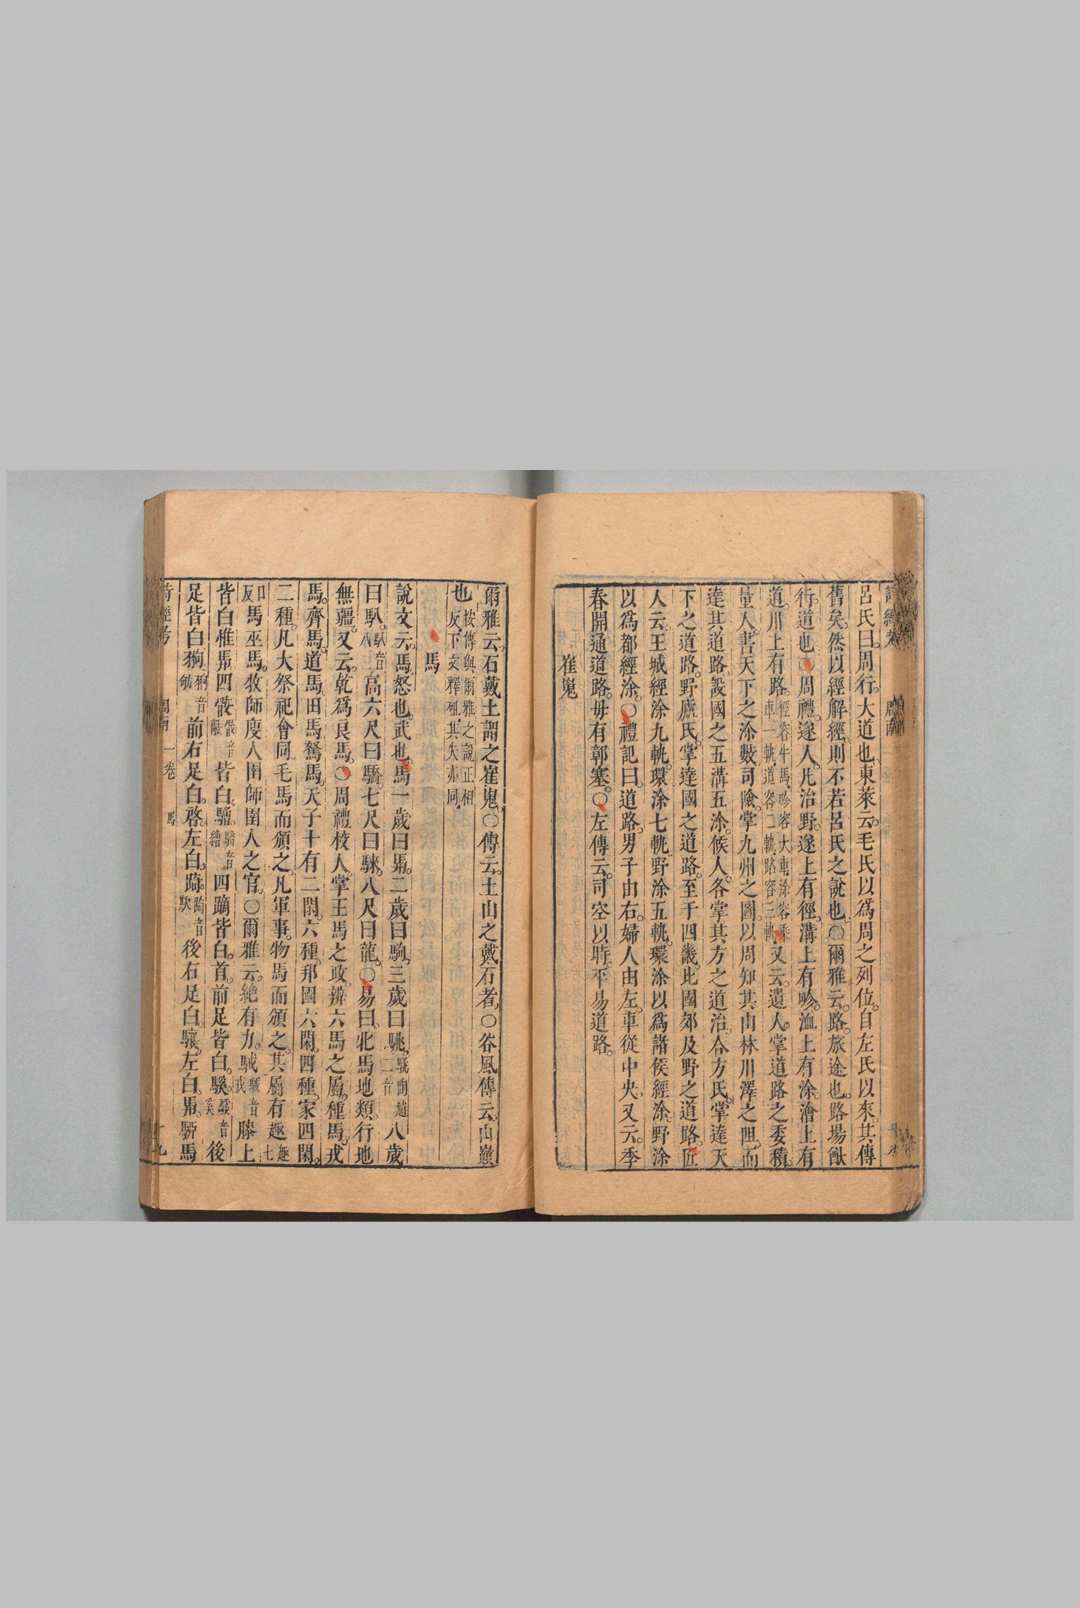 呂氏曰。周行。大道也。東萊云。毛氏以爲周之列位。自左氏以來其傳
舊矣。然以經解經。則不若呂氏之說也。○爾雅云。路。旅途也。路場猷
行。道也。○周禮。遂人。凡治野。遂上有徑。溝上有畛。洫上有涂。澮上有
道。川上有路。徑容牛馬畛容大車涂容乘車一軌道容二軌路容三軌又云。遺人。掌道路之委積。
量人。書天下之涂數。司險。掌九州之圖。以周知其山林川澤之阻。而
達其道路。設國之五溝五涂。候人。各掌其方之道治。合方氏。掌達天
下之道路。野廬氏。掌達國之道路。至于四畿。比國郊及野之道路。匠
人云。王城經涂九軌。環涂七軌。野涂五軌。環涂以爲諸侯經涂。野涂
以爲都經涂。○禮記曰。道路。男子由右。婦人由左。車從中央。又云。季
春開通道路。毋有鄣塞。○左傳云。司空以時。平易道路。
崔嵬
爾雅云。石戴土謂之崔嵬。○傳云。土山之戴石者。○谷風傳云。山巔
也。按傳與爾雅之說正相反下文釋砠其失亦同
馬
說文云。馬。怒也。武也。馬一歲曰馬。二歲曰駒。三歲曰駣。八歲
曰馱。高六尺曰驕。七尺曰騋。八尺曰龍。○易曰。牝馬地類。行地
無疆。又云。乾爲良馬。○周禮。校人掌王馬之政。辨六馬之屬。種馬。戎
馬。齊馬。道馬。田馬。駑馬。天子十有二閑。六種。邦國六閑。四種。家四閑。
二種。凡大祭祀會同。毛馬而頒之。凡軍事。物馬而頒之。其屬有趣
馬。巫馬。牧師。廋人。圉師。圉人之官。○爾雅云。絕有力。駥。膝上
皆白惟馵。四骹皆白驓。四蹢皆白首。前足皆白騱。後
足皆白翑。前右足白啓。左白踦。後右足白驤。左白馵。騂馬
詩經考 周南 一卷 馬 十九